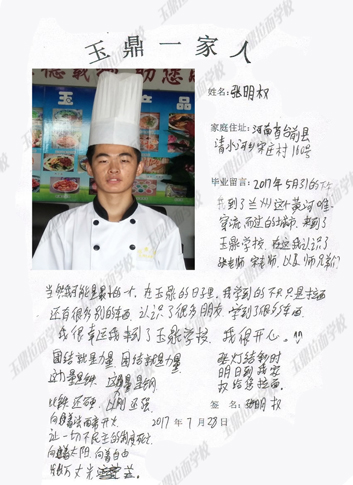 玉鼎一家人
姓名: 张明权
家庭住址: 河南省台前县
清水河乡宋庄村180号
毕业留言: 2017年5月31的下午
我到了兰州这个黄河唯一
穿流而过的城市,来到了
玉鼎学校,在这我认识了
张老师 宋老师 以及师兄弟们
在玉鼎的日子里,我学到的不只是拉面
还有很多别的东西,认识了很多朋友,学到了很多东西
我很幸运我来到了玉鼎学校,我很开心。
团结就是力量 团结就是力量
这力量是铁 这力量是钢
比铁还硬 比钢还强
向着法西斯开火
让一切不民主的制度死亡
向着太阳 向着自由
发出万丈光芒
张灯结彩时
明日到我家
权给您拉面
签名: 张明权
2017年7月28日
玉鼎拉面学校